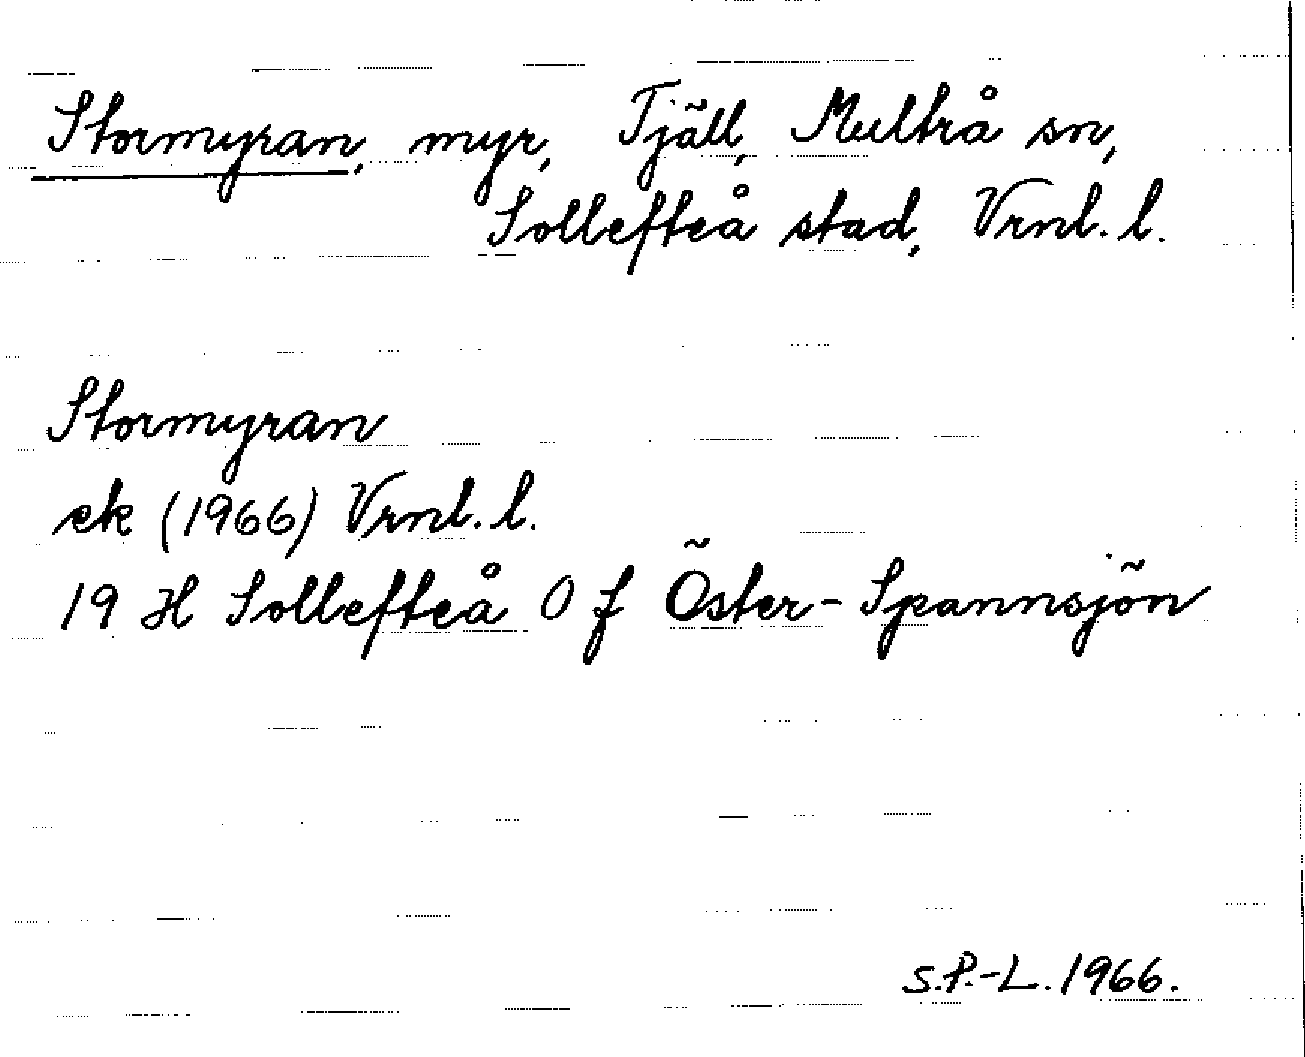 Stormyran, myr, Tjäll, Multrå sn,
Sollefteå stad, Vrnl. l.
Stormyran
ek (1966) Vrnl. l.
19 H Sollefteå 0 f Öster-Spannsjön
S.P.-L. 1966.